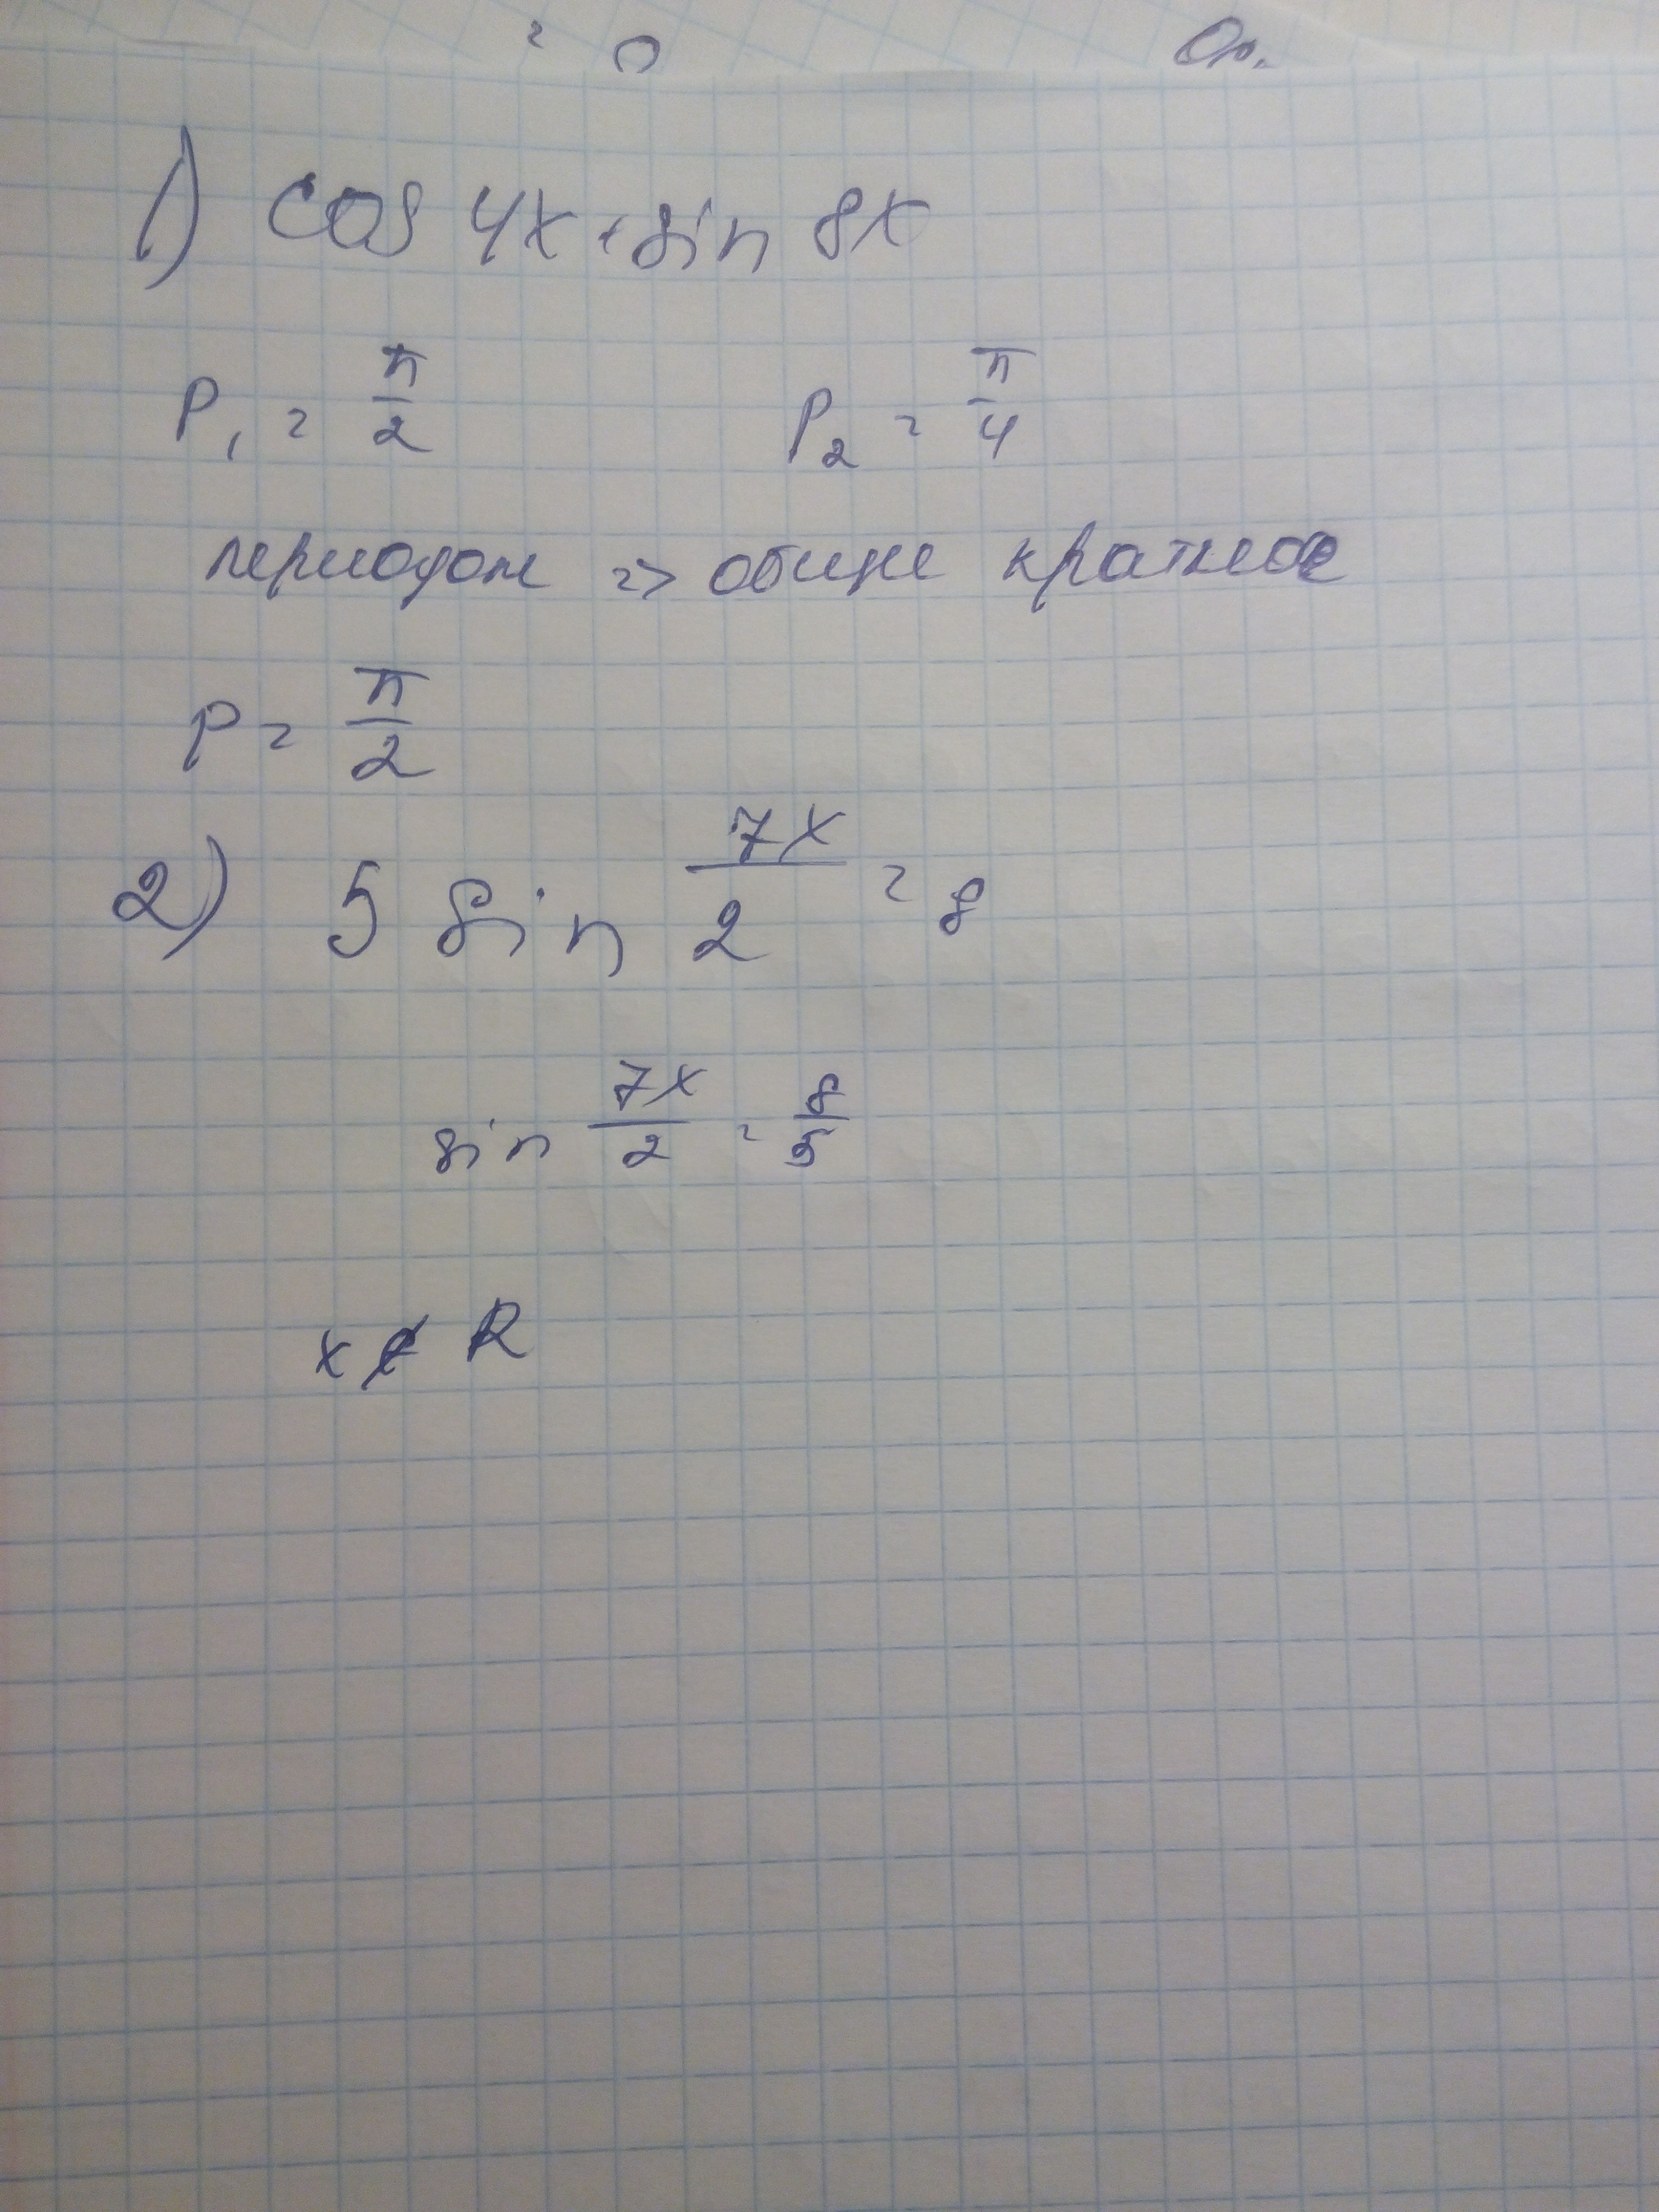 = 0 Ор.
1) cos 4x + sin 8x
P₁ = π/2 P₂ = π/4
периодом => общее кратное
P = π/2
2) 5 sin 7x/2 = 8
sin 7x/2 = 8/5
x ∉ R